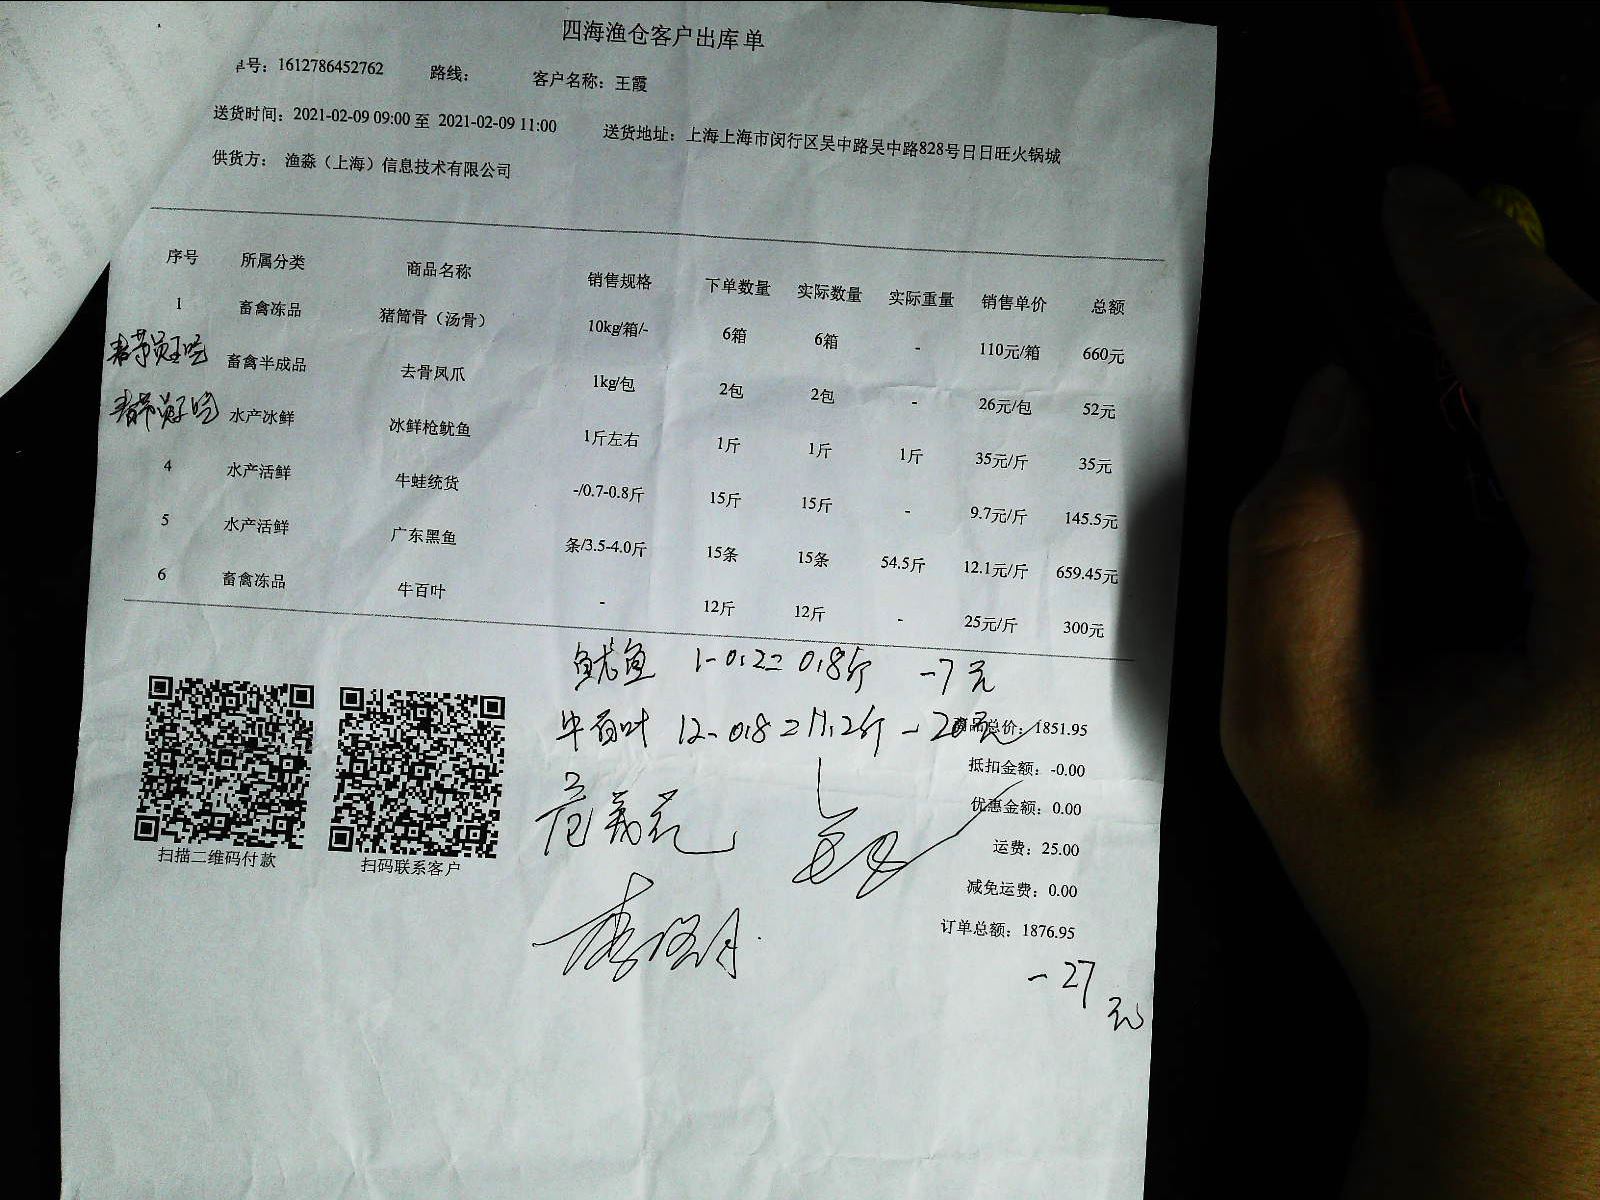 四海渔仓客户出库单
单号：1612786452762 路线： 客户名称：王霞
送货时间：2021-02-09 09:00 至 2021-02-09 11:00 送货地址：上海上海市闵行区吴中路吴中路828号日日旺火锅城
供货方： 渔淼（上海）信息技术有限公司
序号 所属分类 商品名称 销售规格 下单数量 实际数量 实际重量 销售单价 总额
1 畜禽冻品 猪筒骨（汤骨） 10kg/箱/- 6箱 6箱 - 110元/箱 660元
春节员工吃 畜禽半成品 去骨凤爪 1kg/包 2包 2包 - 26元/包 52元
春节员工吃 水产冰鲜 冰鲜枪鱿鱼 1斤左右 1斤 1斤 1斤 35元/斤 35元
4 水产活鲜 牛蛙统货 -/0.7-0.8斤 15斤 15斤 - 9.7元/斤 145.5元
5 水产活鲜 广东黑鱼 条/3.5-4.0斤 15条 15条 54.5斤 12.1元/斤 659.45元
6 畜禽冻品 牛百叶 - 12斤 12斤 - 25元/斤 300元
鱿鱼 1-0.2=0.8斤 -7元
牛百叶 12-0.8=11.2斤 -20元
商品总价：1851.95
抵扣金额：-0.00
优惠金额：0.00
运费：25.00
减免运费：0.00
订单总额：1876.95
-27元
扫描二维码付款 扫码联系客户